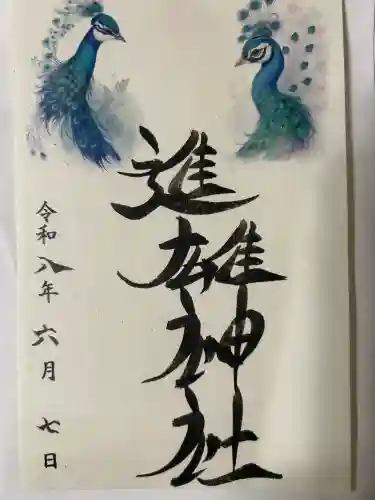 進雄神社
令和八年六月七日